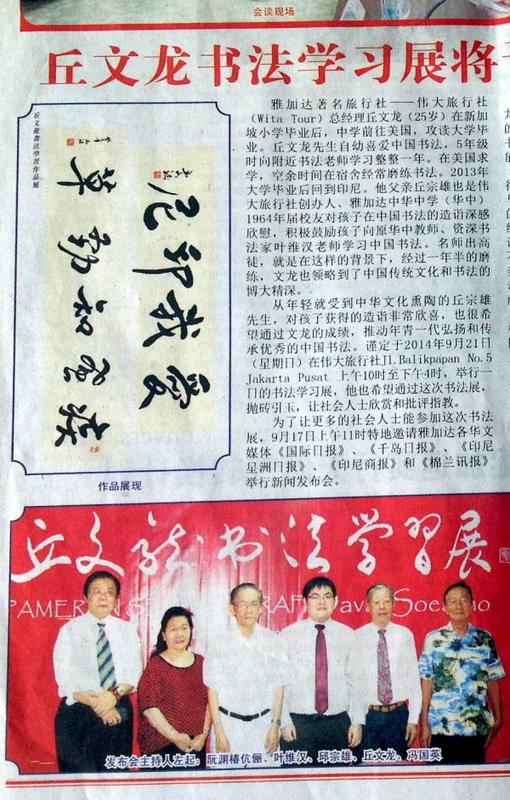 会谈现场
丘文龙书法学习展将
丘文龍書法學習作品展
愛我印尼
作品展现
雅加达著名旅行社——伟大旅行社
（Wita Tour）总经理丘文龙（25岁）在新加
坡小学毕业后，中学前往美国，攻读大学毕
业。丘文龙先生自幼喜爱中国书法，5年级
时向附近书法老师学习整整一年。在美国求
学，空余时间在宿舍经常磨练书法。2013年
大学毕业后回到印尼。他父亲丘宗雄也是伟
大旅行社创办人、雅加达中华中学（华中）
1964年届校友对孩子在中国书法的造诣深感
欣慰，积极鼓励孩子向原华中教师、资深书
法家叶维汉老师学习中国书法。名师出高
徒，就是在这样的背景下，经过一年半的磨
练，文龙也领略到了中国传统文化和书法的
博大精深。
从年轻就受到中华文化熏陶的丘宗雄
先生，对孩子获得的造诣非常欣喜，也很希
望通过文龙的成绩，推动年青一代弘扬和传
承优秀的中国书法。谨定于2014年9月21日
（星期日）在伟大旅行社Jl.Balikpapan No.5
Jakarta Pusat 上午10时至下午4时，举行一
日的书法学习展，他也希望通过这次书法展，
抛砖引玉，让社会人士欣赏和批评指教。
为了让更多的社会人士能参加这次书法
展，9月17日上午11时特地邀请雅加达各华文
媒体《国际日报》、《千岛日报》、《印尼
星洲日报》、《印尼商报》和《棉兰讯报》
举行新闻发布会。
丘文龙书法学習展
PAMERAN
发布会主持人左起：阮渊椿伉俪、叶维汉、邱宗雄、丘文龙、冯国英